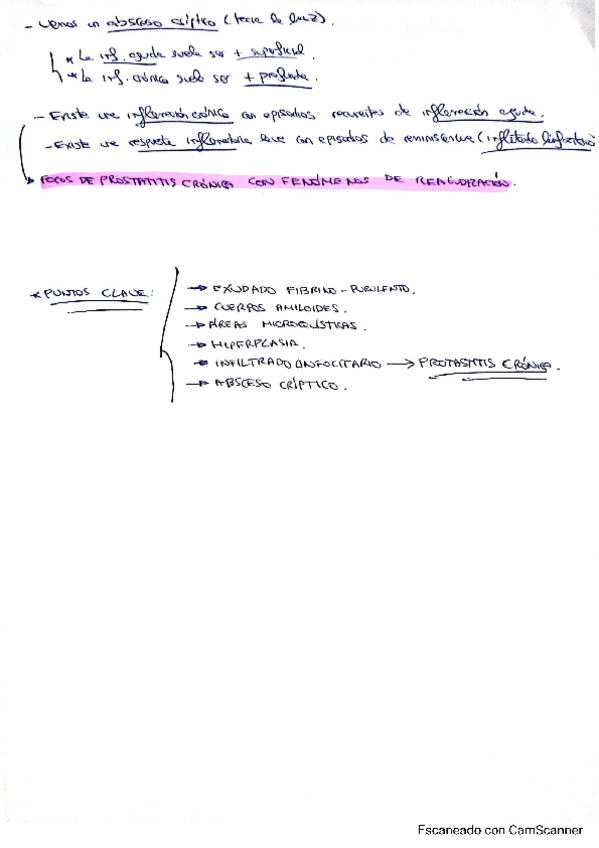 - Vemos un absceso críptico (hacia la luz).
* La inf. aguda suele ser + superficial
* La inf. crónica suele ser + profunda.
- Existe una inflamación crónica con episodios recurrentes de inflamación aguda.
- Existe una respuesta inflamatoria leve con episodios de reminiscencia (infiltrado linfocitario)
FOCOS DE PROSTATITIS CRÓNICA CON FENÓMENOS DE REAGUDIZACIÓN.
* PUNTOS CLAVE:
→ EXUDADO FIBRINO-PURULENTO.
→ CUERPOS AMILOIDES.
→ ÁREAS MICROQUÍSTICAS.
→ HIPERPLASIA.
→ INFILTRADO LINFOCITARIO → PROTASTITIS CRÓNICA.
→ ABSCESO CRÍPTICO.
Escaneado con CamScanner